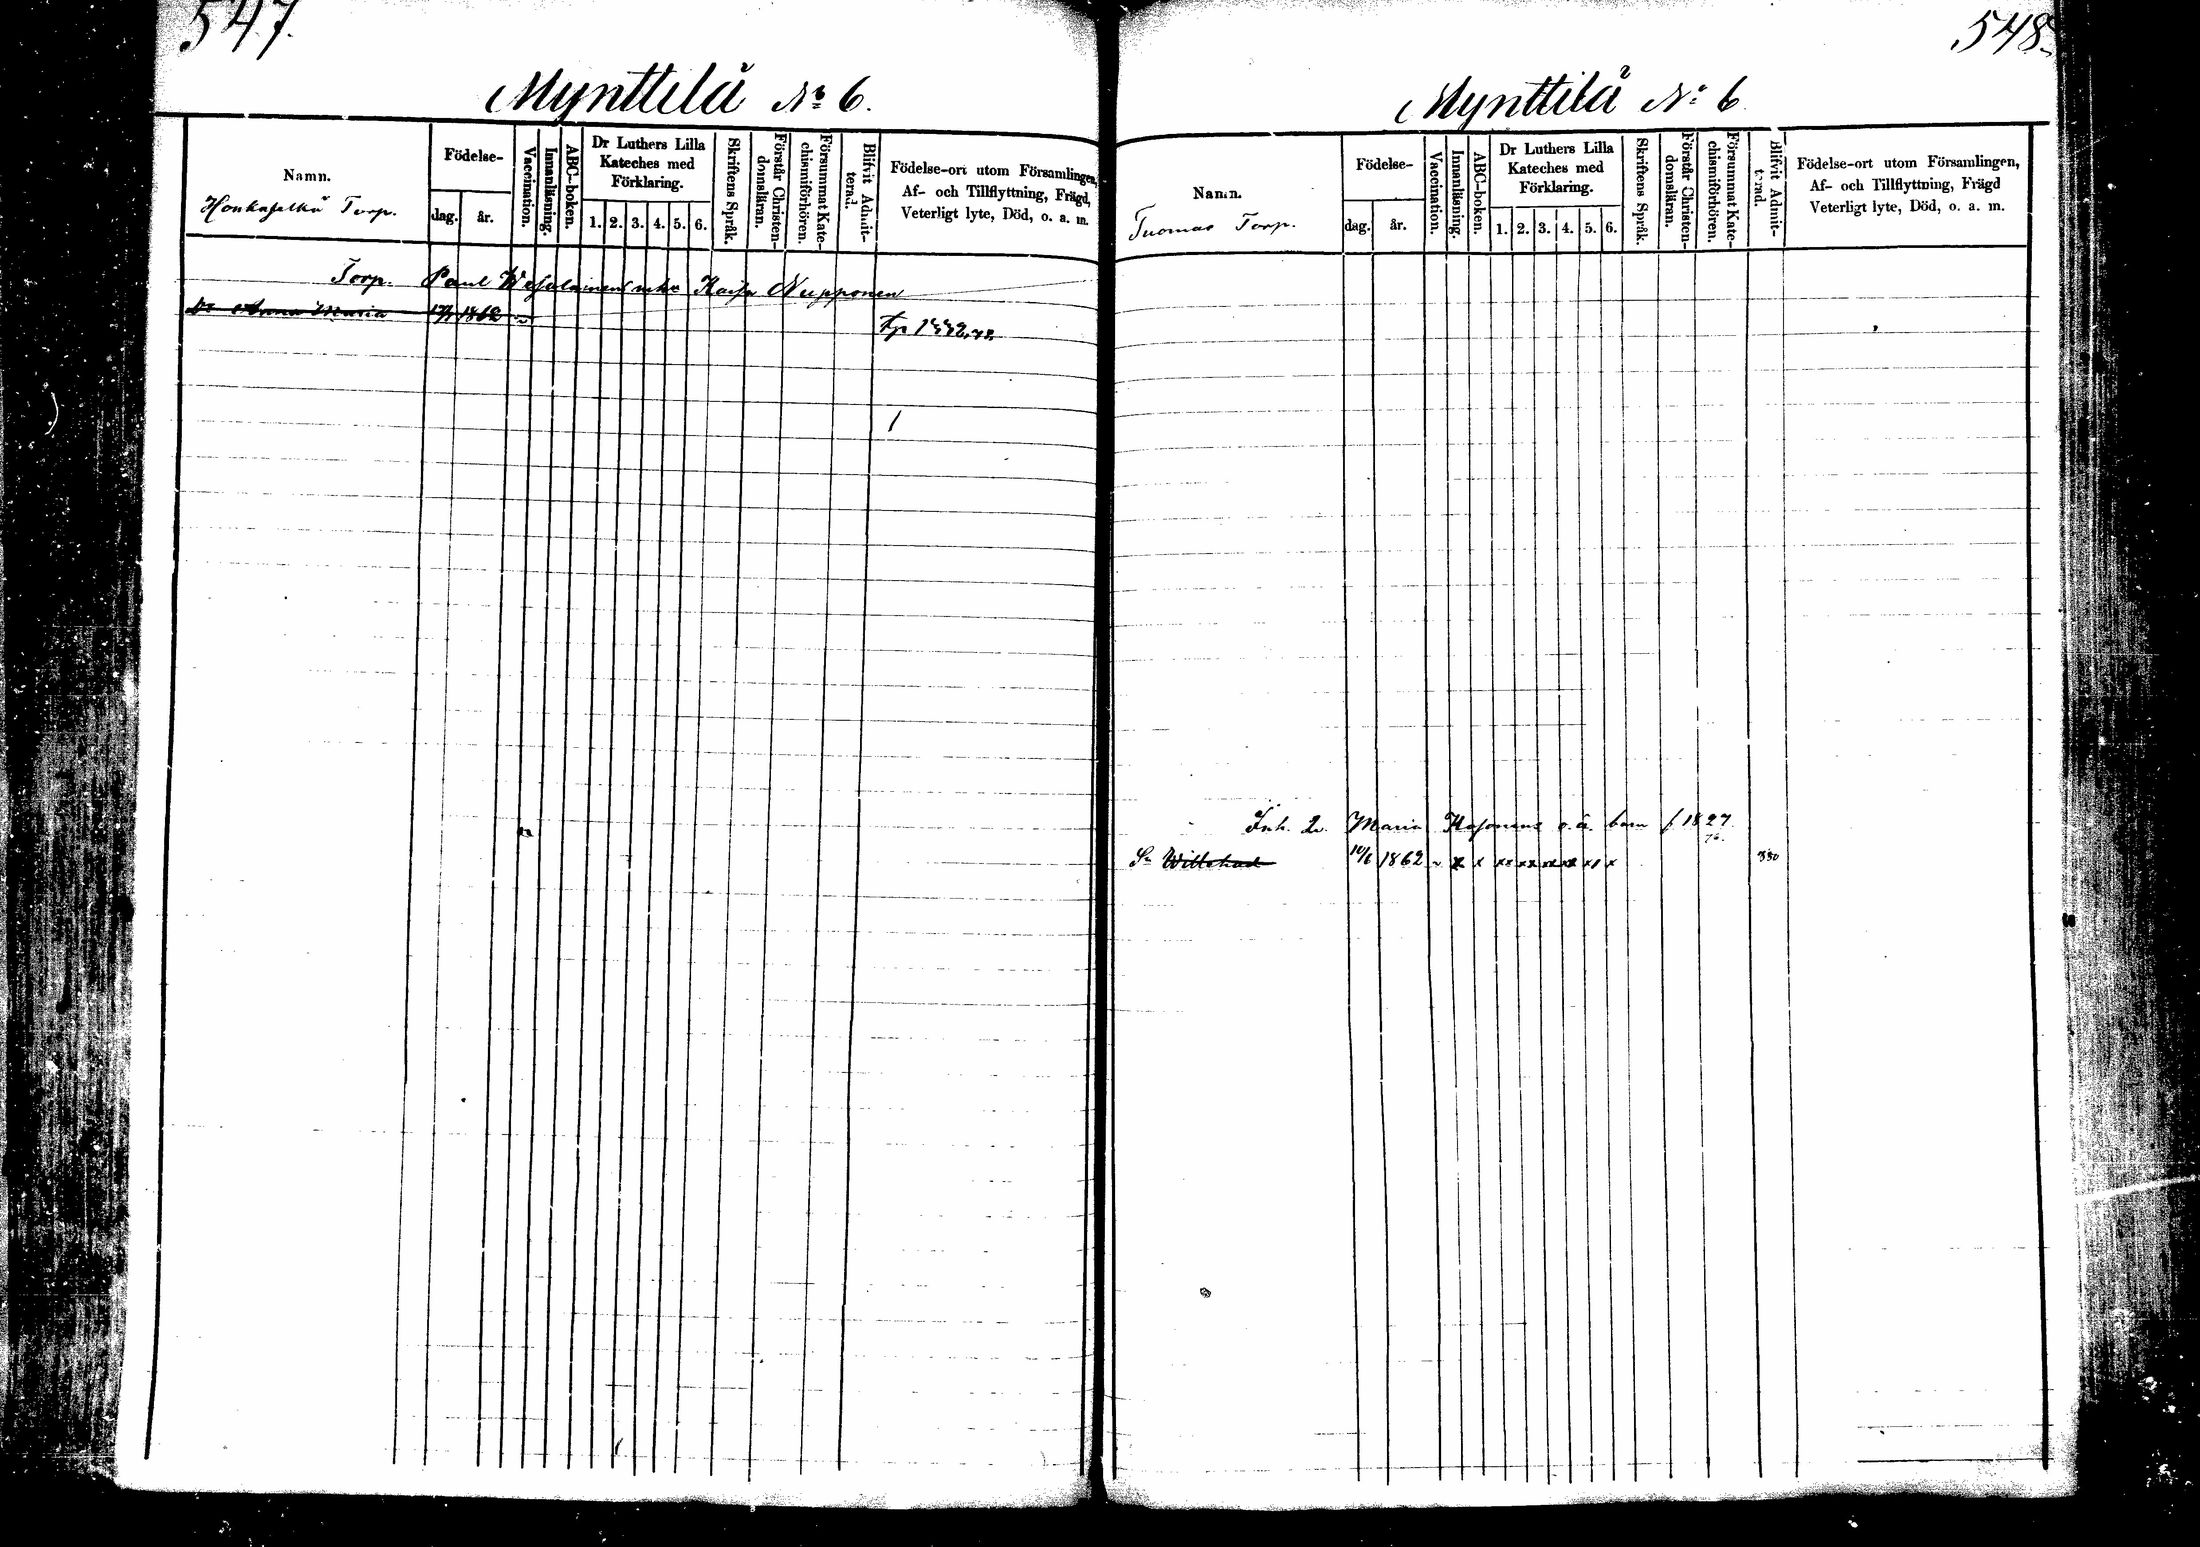 547.
Mynttilä No 6.
Namn.
Honkaselkä Torp.
Födelse-
dag. år.
Vaccination.
Innanläsning.
ABC-boken.
Dr Luthers Lilla
Kateches med
Förklaring.
1. 2. 3. 4. 5. 6.
Skriftens Språk.
Förstår Christen-
domsläran.
Försummat Kate-
chismiförhören.
Blifvit Admit-
terad.
Födelse-ort utom Församlingen,
Af- och Tillflyttning, Frägd,
Veterligt lyte, Död, o. a. m.
Torp. Paul Kaisa Nupponen
Dr Anna Maria 1862
548.
Mynttilä No 6
Namn.
Tuomas Torp.
Födelse-
dag. år.
Vaccination.
Innanläsning.
ABC-boken.
Dr Luthers Lilla
Kateches med
Förklaring.
1. 2. 3. 4. 5. 6.
Skriftens Språk.
Förstår Christen-
domsläran.
Försummat Kate-
chismiförhören.
Blifvit Admit-
terad.
Födelse-ort utom Församlingen,
Af- och Tillflyttning, Frägd
Veterligt lyte, Död, o. a. m.
Inh. Maria o. ä. barn f 1827
Sn Willehad 10/6 1862 x x xx xx xx xx x1 x